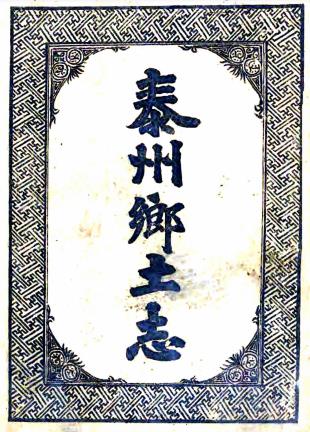 泰州鄉土志